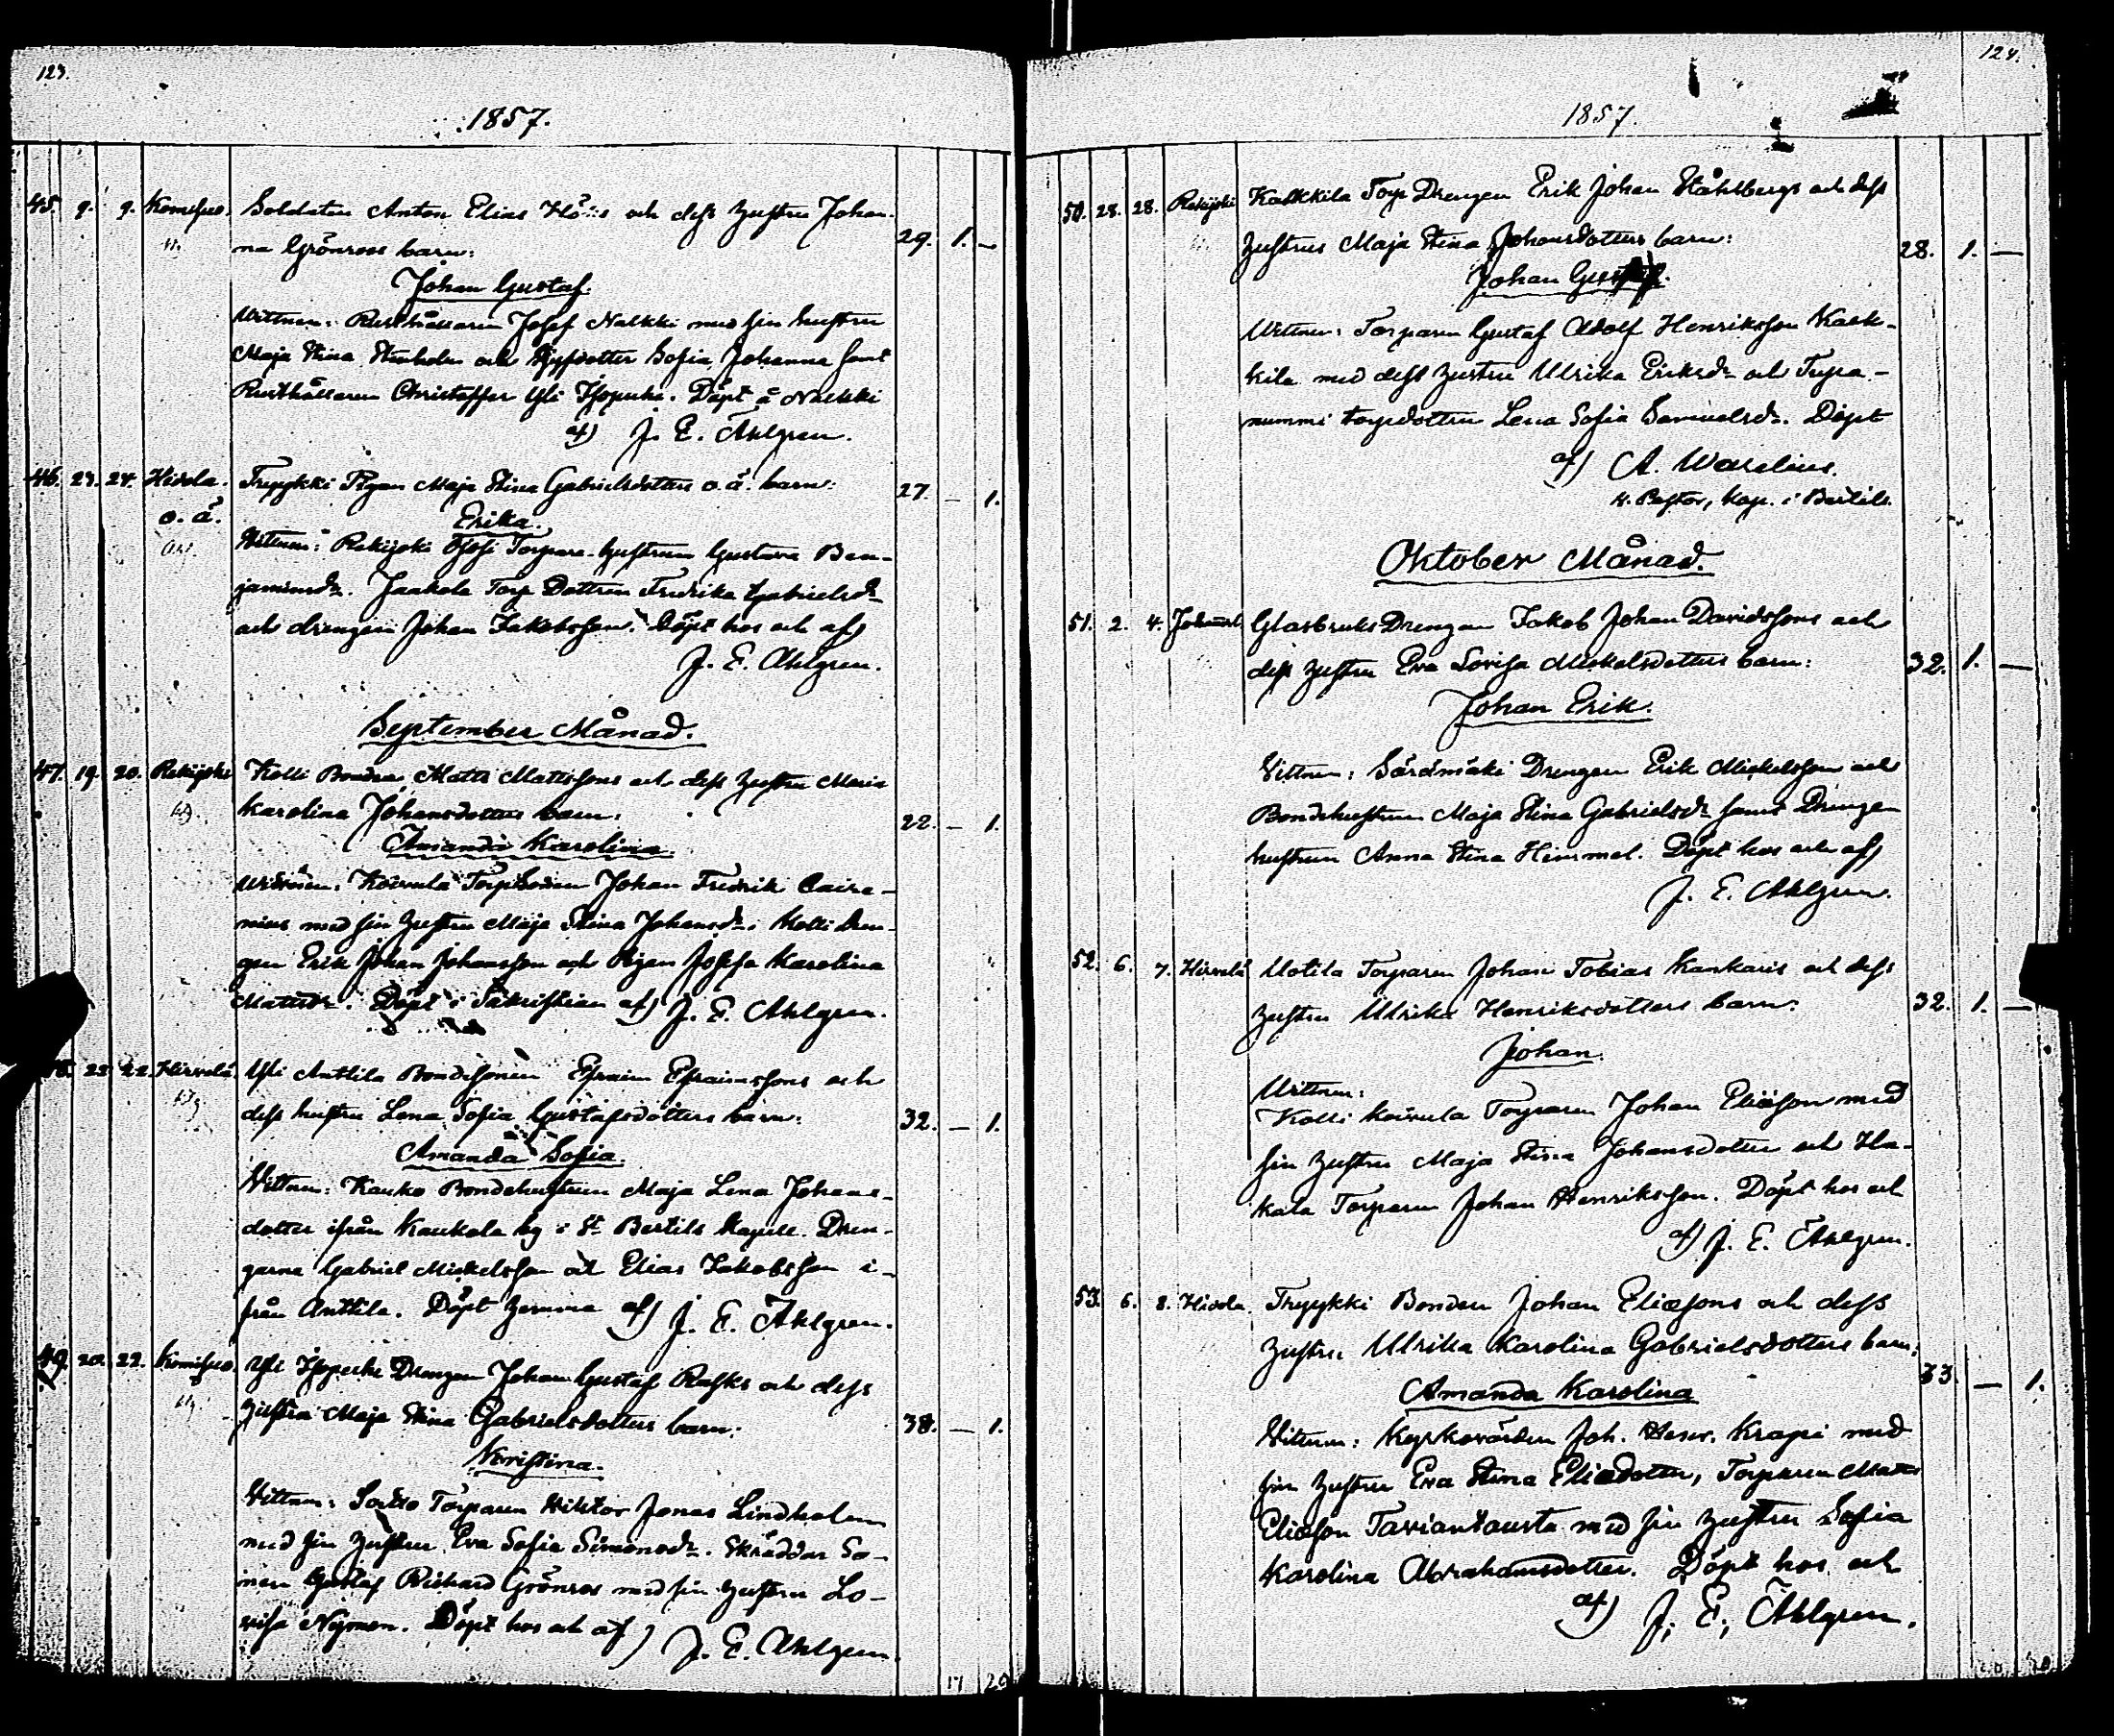 123.
1857.
45. 9. 9. Komisuo. Soldaten Anton Elias och dess hustru Johan-
na Grönroos barn: 29. 1. —
Johan Gustaf.
Wittnen: Rusthållaren Josef Nalkki med sin hustru
Maja Stina Stenholm och Styfdotter Sofia Johanna samt
Rusthållaren Christoffer Yli Isopuhe. Döpt å Nalkki
af) J. E. Ahlgren.
46. 23. 24. Hirola. Trypykki Pigan Maja Stina Gabrielsdotters o. ä. barn: 27. — 1.
o. ä. Erika.
Wittnen: Rekijoki Torpare hustrun Gustava Ben-
jaminsdr. Jaakola Torp Dottren Fredrika Gabrielsdr
och drengen Johan Jakobsson. Döpt hos och af)
J. E. Ahlgren.
September Månad.
47. 19. 20. Rekijoki Kolli Bonden Matts Mattssons och dess hustru Maria
Karolina Johansdotters barn: 22. — 1.
Amanda Karolina.
Wittnen: Koivula Johan Fredrik Caire-
nius med sin hustru Maja Stina Johansdr. Kolli dren-
gen Erik Johan Johansson och Pigan Josefa Karolina
Mattsdr. Döpt i Sakristian af) J. E. Ahlgren.
48. 22. 22. Hirvelä. Yli Anttila Bondesonen Efraim Efraimssons och
dess hustru Lena Sofia Gustafsdotters barn: 32. — 1.
Amanda Sofia.
Wittnen: Kauko Bondehustrun Maja Lena Johans-
dotter ifrån Kaukola by i St. Bertils Kapell. Dren-
garne Gabriel Mickelsson och Elias Jakobsson i-
från Anttila. Döpt hemma af) J. E. Ahlgren.
49. 20. 22. Komisuo. Yli Isopuhe Drengen Johan Gustaf Rasks och dess
hustru Maja Stina Gabrielsdotters barn: 38. — 1.
Kristina.
Wittnen: Torparen Wiktor Jonas Lindholm
med sin hustru Eva Sofia Simonsdr. Skräddar So-
nen Gustaf Richard Grönroos med sin hustru Lo-
visa Nyman. Döpt hos och af) J. E. Ahlgren.
17 20
124.
1857.
50. 28. 28. Rekijoki Kalkkila Torp Drengen Erik Johan Ståhlbergs och dess
hustrus Maja Stina Johansdotters barn: 28. 1. —
Johan Gustaf.
Wittnen: Torparen Gustaf Adolf Henriksson Kalk-
kila med dess hustru Ulrika Eriksdr och Tupa-
nummi torpdottren Lena Sofia Samuelsdr. Döpt
af) A. Warelius.
v. Pastor, Kap. i Bertils.
Oktober Månad.
51. 2. 4. Glasbruks Drengen Jakob Johan Davidssons och
dess hustru Eva Lovisa Mickelsdotters barn: 32. 1. —
Johan Erik.
Wittnen: Särämäki Drengen Erik Mickelsson och
Bondehustrun Maja Stina Gabrielsdr samt Drenge
hustrun Anna Stina Himmel. Döpt hos och af)
J. E. Ahlgren.
52. 6. 7. Hirvelä Uotila Torparen Johan Tobias Kankaris och dess
hustru Ulrika Henriksdotters barn: 32. 1. —
Johan.
Wittnen:
Kolli Koivula Torparen Johan Eliasson med
sin hustru Maja Stina Johansdotter och Ha-
kala Torparen Johan Henriksson. Döpt hos och
af) J. E. Ahlgren.
53. 6. 8. Hirola. Trypykki Bonden Johan Eliassons och dess
hustru Ulrika Karolina Gabrielsdotters barn: 33 — 1.
Amanda Karolina
Wittnen: Kyrkovärden Joh. Henr. Krapi med
sin hustru Eva Stina Eliædotter, Torparen Matts
Eliasson Taviantausta med sin hustru Sofia
Karolina Abrahamsdotter. Döpt hos och
af) J. E. Ahlgren.
20